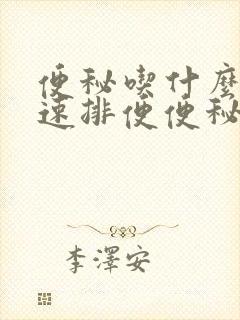 便秘喫什麼
速排便便秘
李澤安